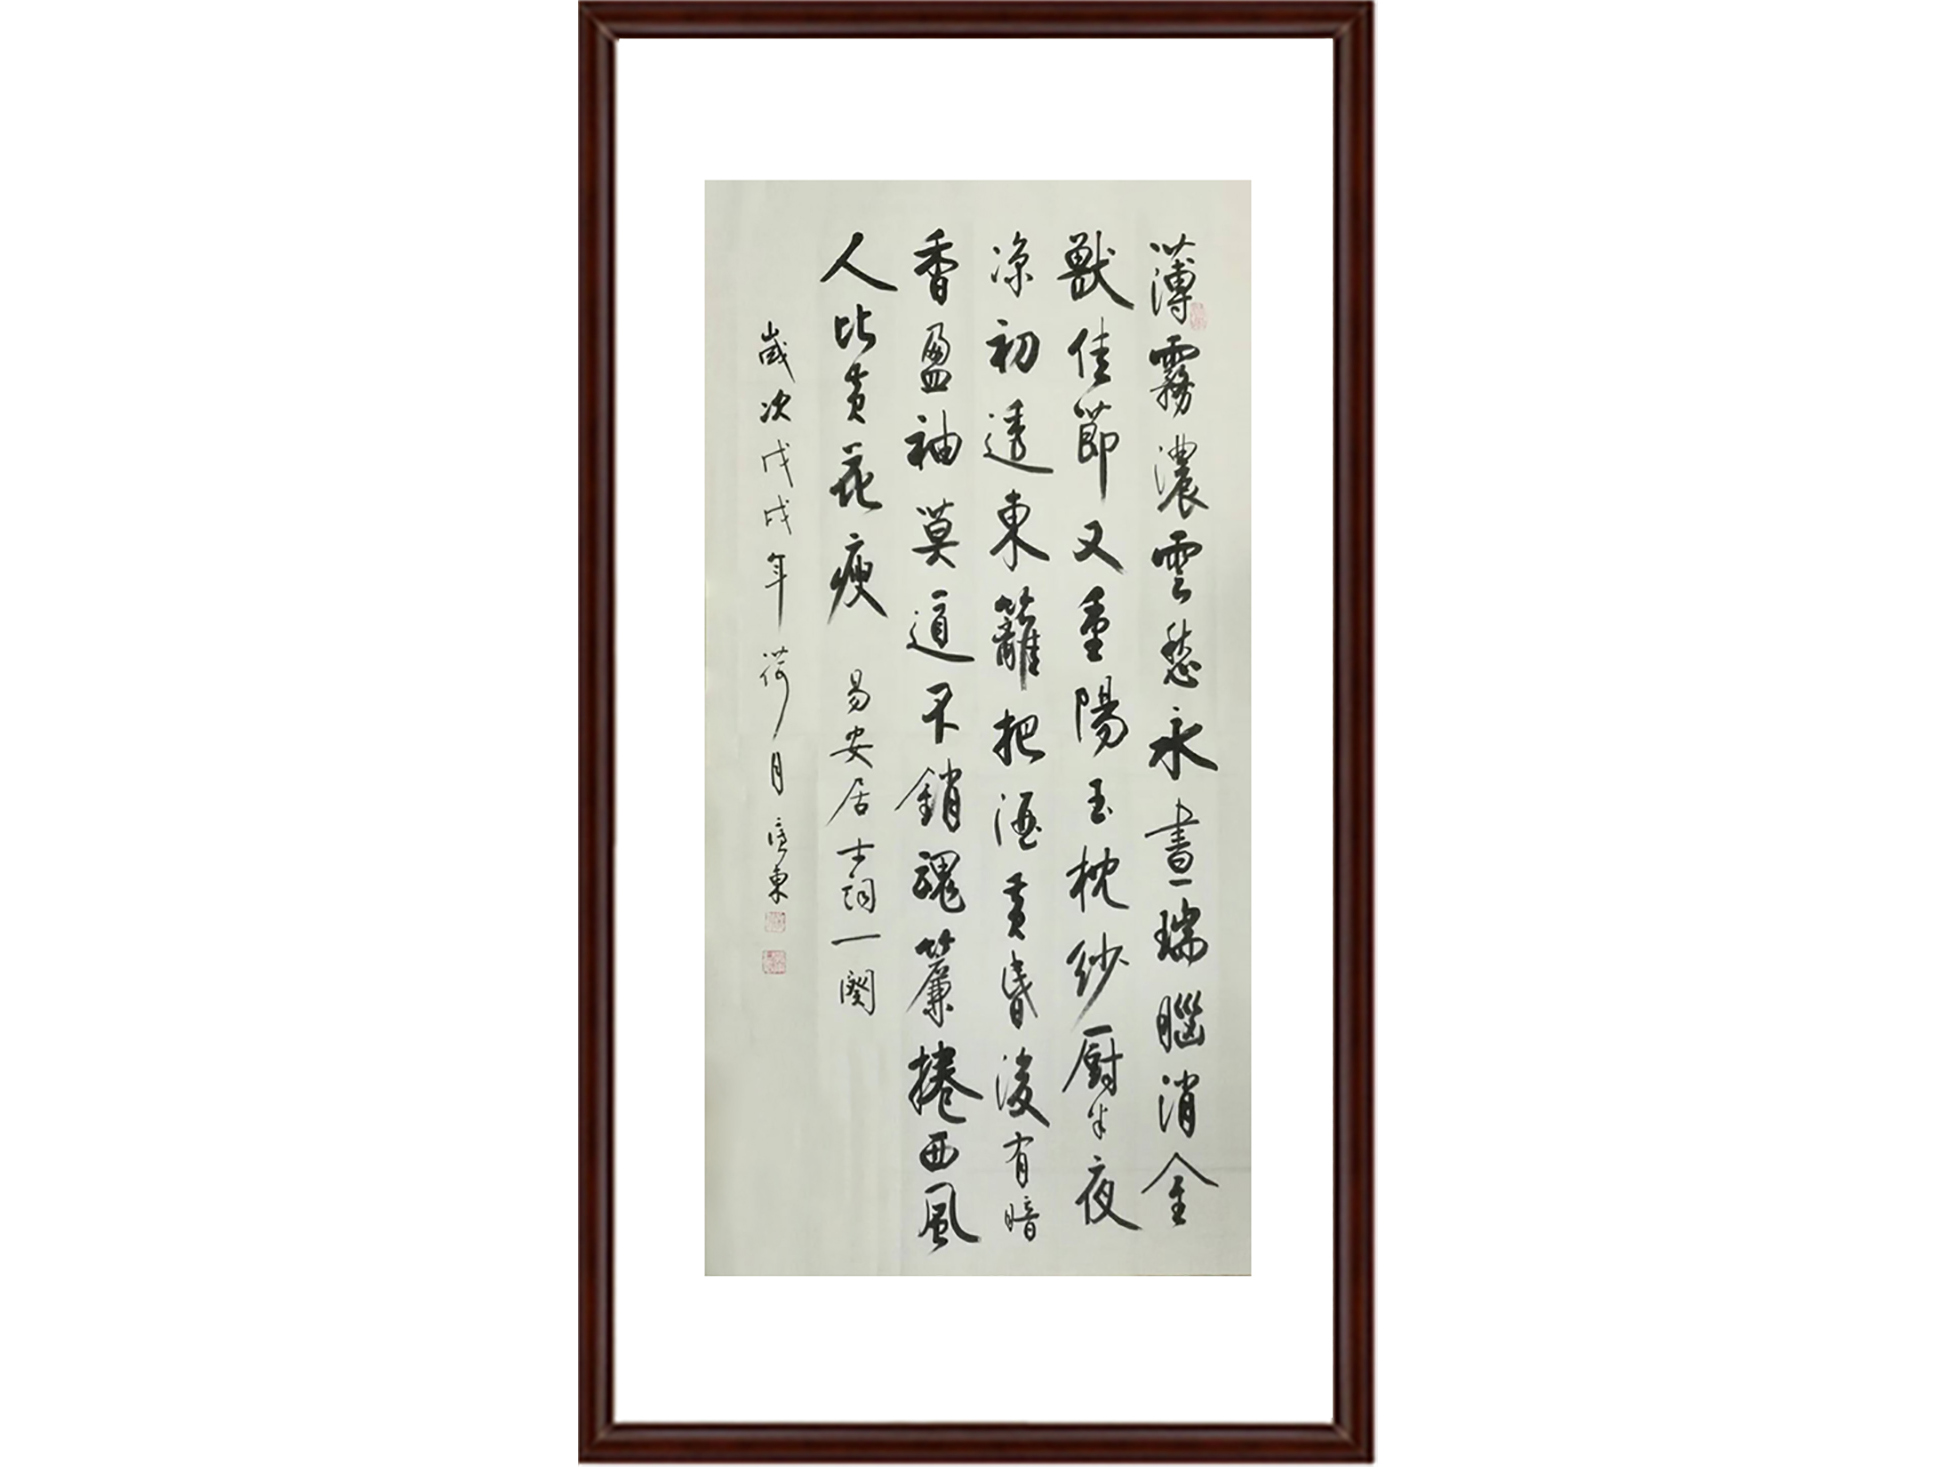 薄霧濃雲愁永晝瑞腦消金
獸佳節又重陽玉枕紗厨半夜
涼初透東籬把酒黃昏後有暗
香盈袖莫道不銷魂簾捲西風
人比黃花瘦 易安居士詞一闋
歲次戊戌年荷月 東